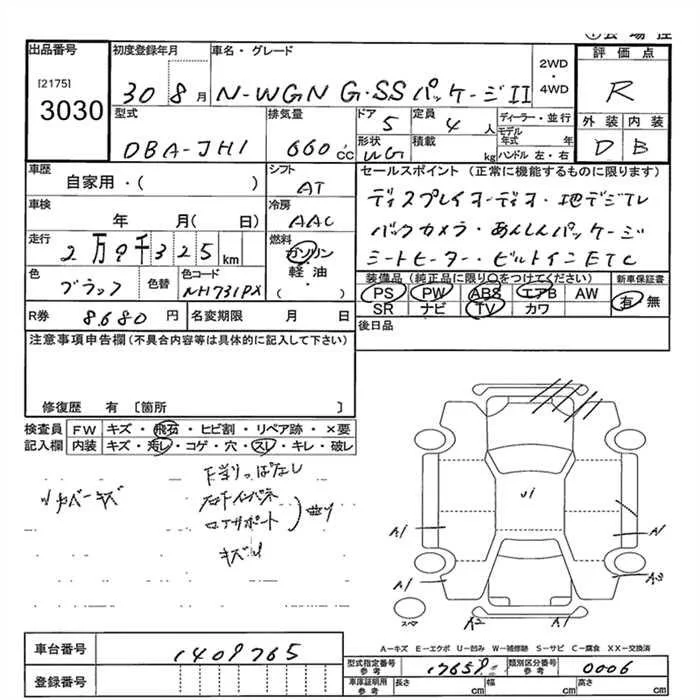 出品番号
[2175]
3030
初度登録年月
30 8月
車名・グレード
N-WGN G・SS パッケージII
2WD
・
4WD
評価点
R
型式
DBA-JH1
排気量
660 cc
ドア
5
定員
4 人
ディーラー・並行
モデル年式 年
ハンドル 左・右
形状
WG
積載
kg
外装 内装
D B
車歴
自家用・( )
シフト
AT
セールスポイント (正常に機能するものに限ります)
ディスプレイオーディオ・地デジTV
バックカメラ・あんしんパッケージ
シートヒーター・ビルトインETC
車検
年 月( 日)
冷房
AAC
走行
2万9千325 km
燃料
ガソリン
・
軽油
・
( )
色
ブラック
色替
色コード
NH731PX
装備品 (純正品に限り○をつけてください)
PS PW ABS エアB AW
SR ナビ TV カワ
新車保証書
有・無
R券 8,680 円
名変期限 月 日
後日品
注意事項申告欄(不具合内容等は具体的に記入して下さい)
修復歴 有 [箇所 ]
検査員 FW キズ・飛石・ヒビ割・リペア跡・×要
記入欄 内装 キズ・汚レ・コゲ・穴・スレ・キレ・破レ
リヤバーキズ
下まわりサビ
コアサポート
曲り
キズU
U1
A1
A1
A1
A3
A2
A1
スペア
A-キズ E-エクボ U-凹み W-補修跡 S-サビ C-腐食 XX-交換済
車台番号
1409765
登録番号
型式指定番号
参考
17659
類別区分番号
参考
0006
車庫証明用
参考
長さ cm
幅 cm
高さ cm